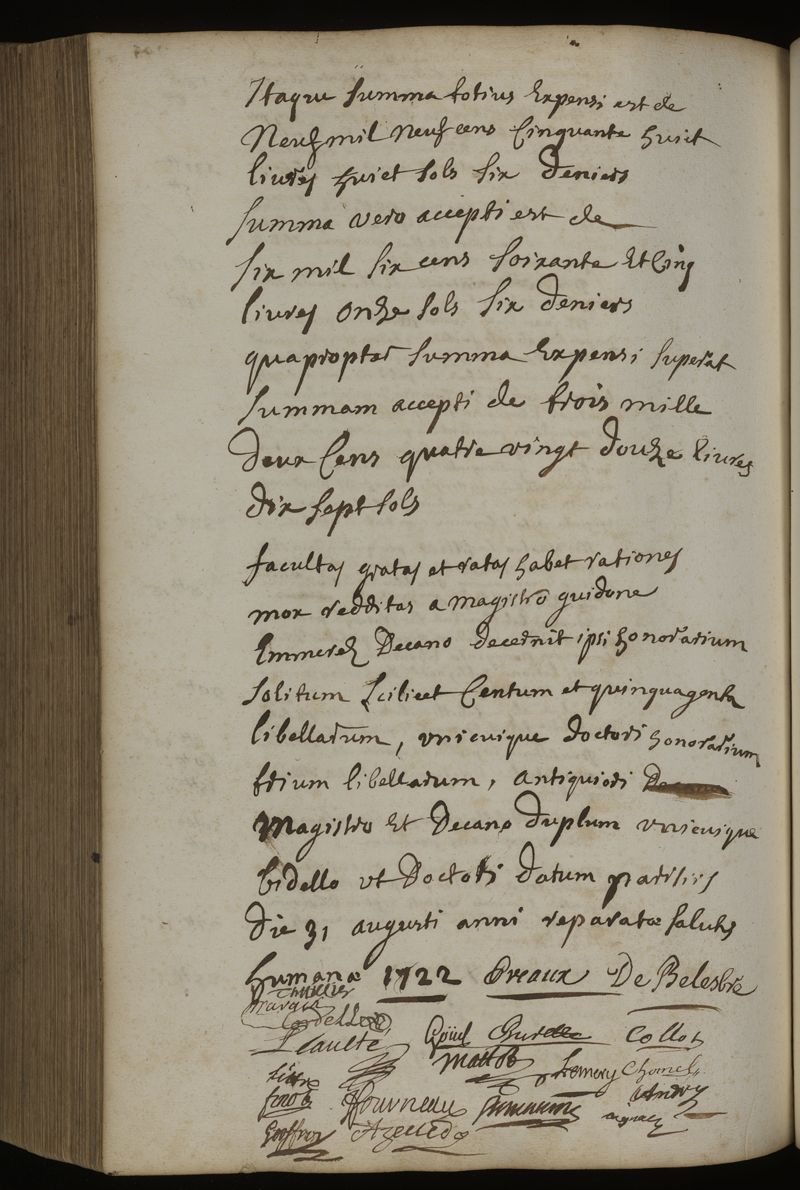 Itaque summa totius Expensi est de
Neuf mil neuf cens Cinquante huict
livres huict sols six deniers
summa vero accepti est de
six mil six cens soixante Et Cinq
livres onze sols six deniers
quapropter summa Expensi superat
summam accepti de trois mille
deux Cens quatre vingt douze livres
dix sept sols
facultas gratas et ratas habet rationes
mox redditas a magistro guidone
Emmerez Decano decernit ipsi honorarium
solitum scilicet Centum et quinquagenta
libellarum, unicuique doctori honorarium
trium libellarum, antiquiori
Magistro Et Decano duplum unicuique
bidello ut Doctori datum parisiis
die 31 augusti anni reparatæ salutis
humanæ 1722 Preaux De Belesbre
Thuillier
Leaulté Goüel Collot
Mattot Lemery Chomel
Afforty Andry
Geoffroy Azevedo